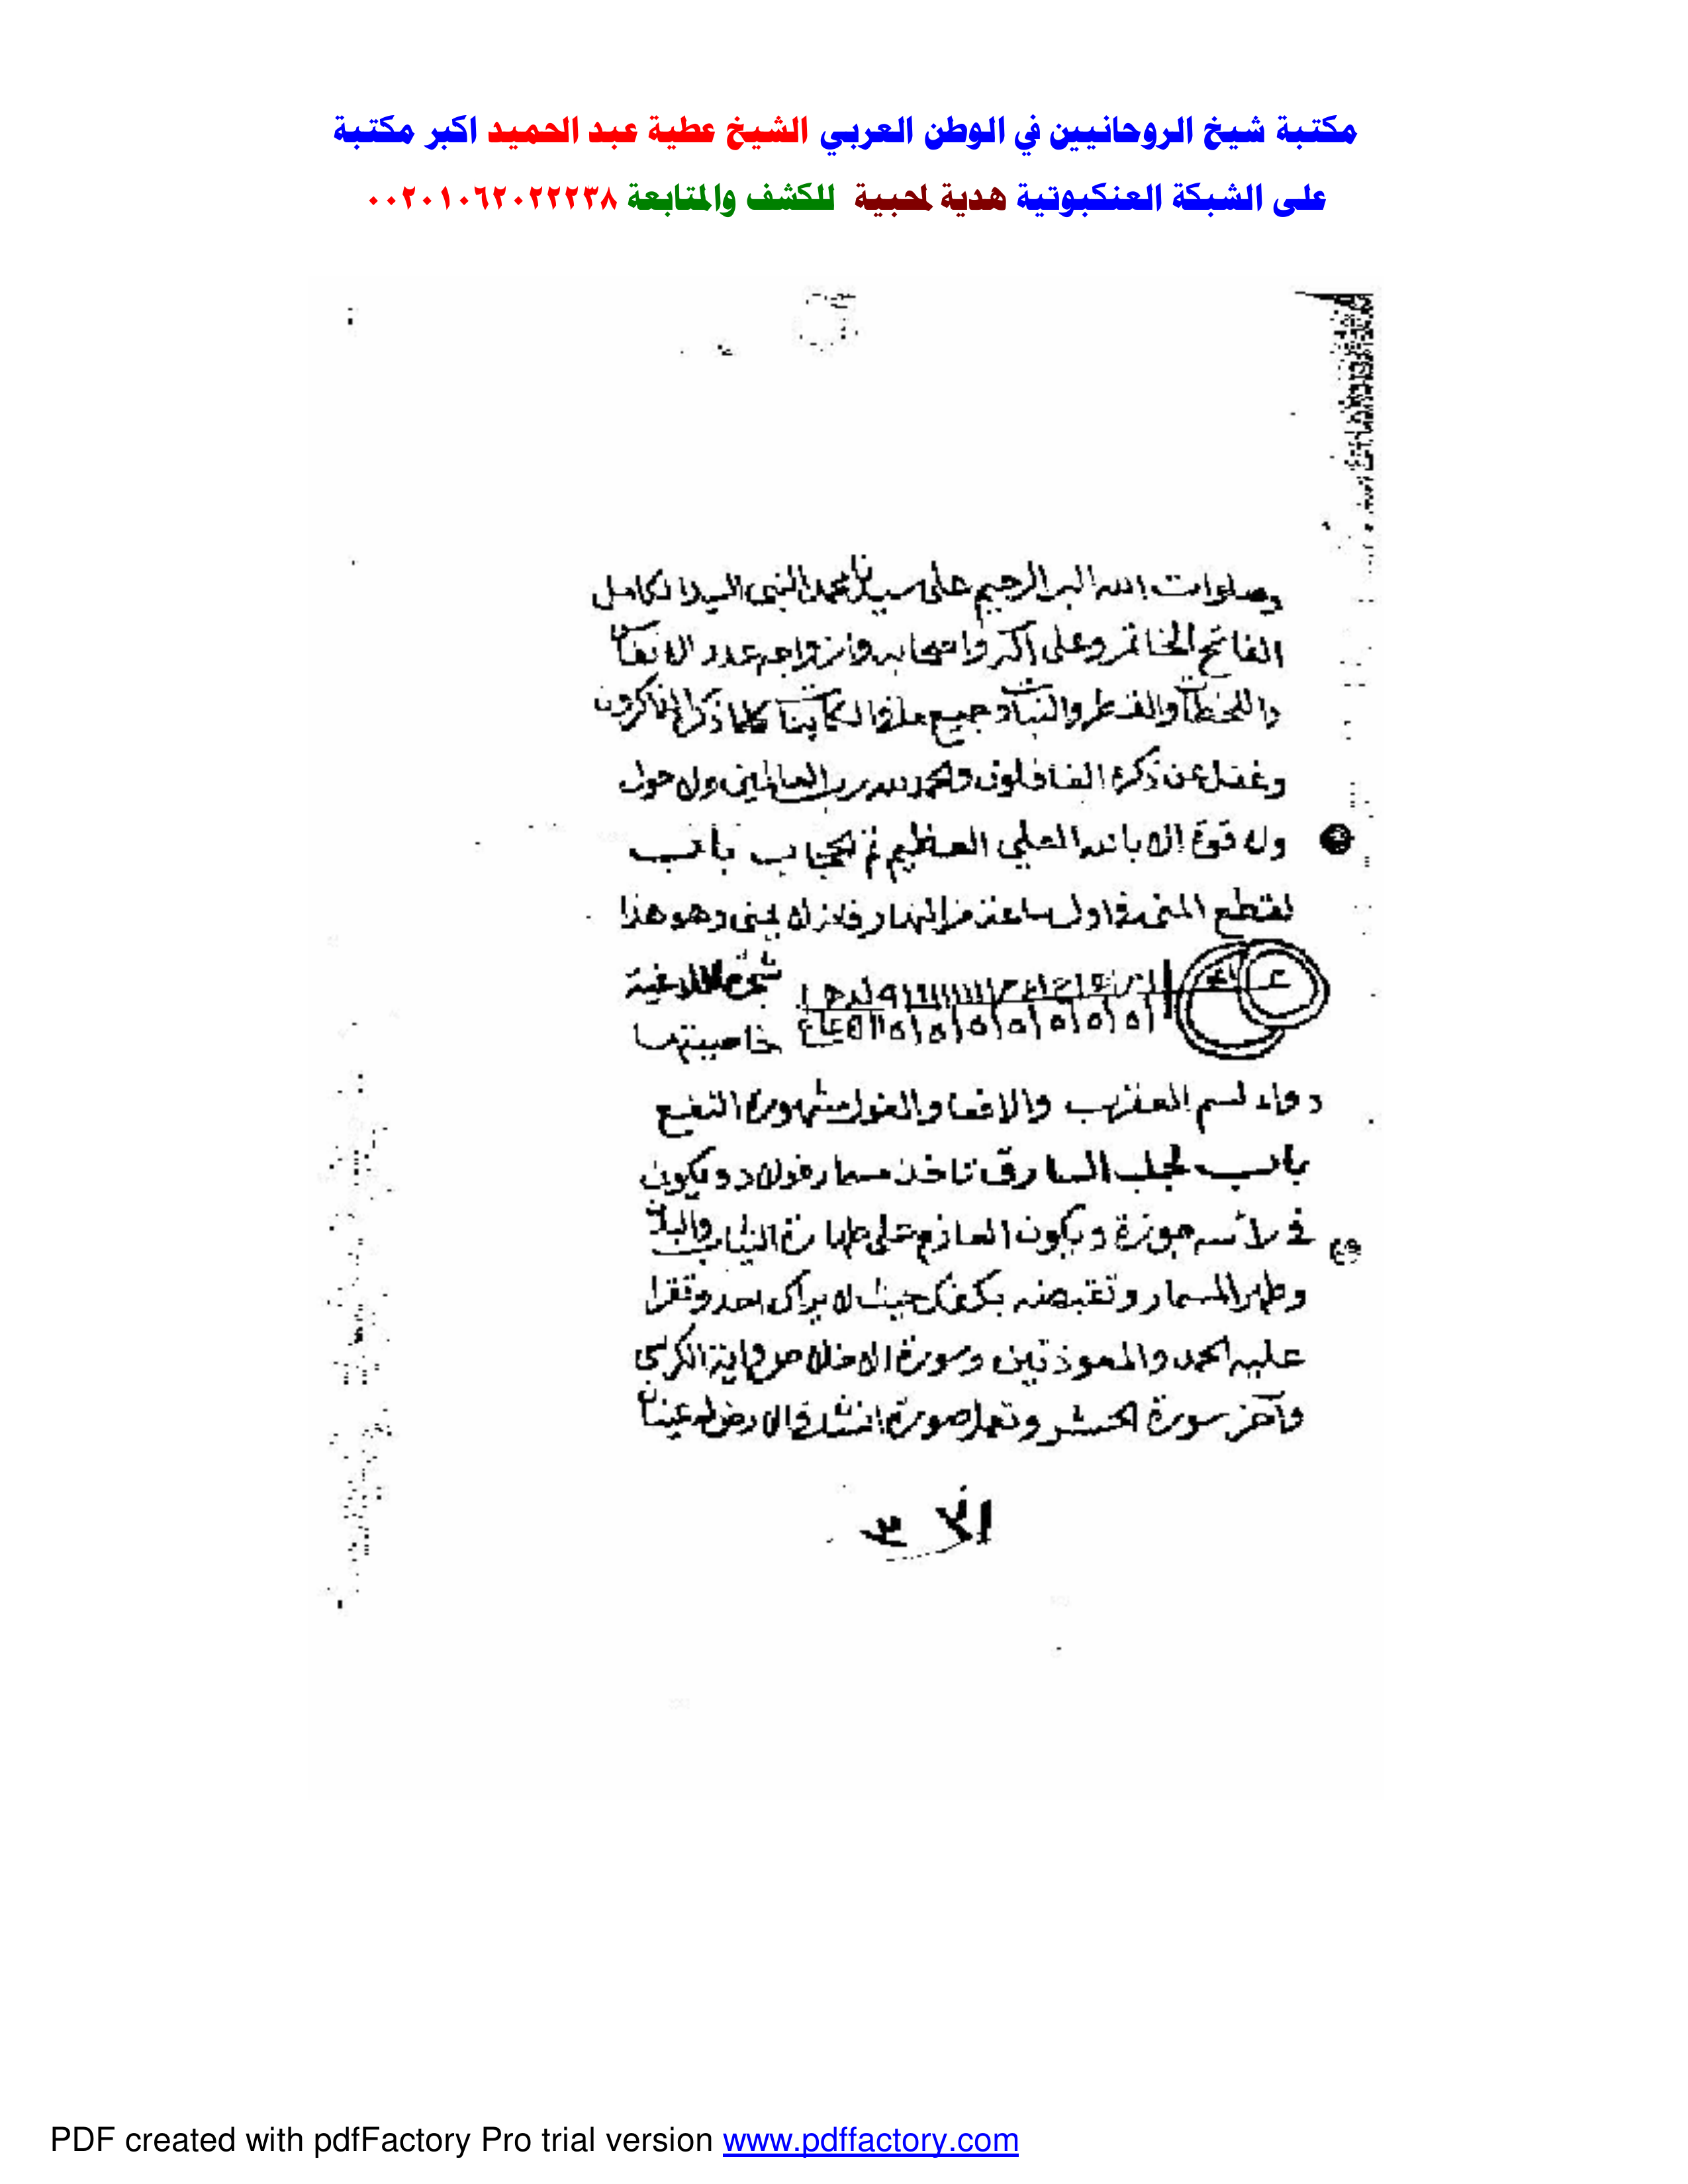 مكتبة شيخ الروحانيين في الوطن العربي الشيخ عطية عبد الحميد اكبر مكتبة
على الشبكة العنكبوتية هدية لمحبية للكشف والمتابعة ٠٠٢٠١٠٦٢٠٢٢٢٣٨
وصلوات الله البر الرحيم على سيدنا محمد النبي السيد الكامل
الفاتح الخاتم وعلى آله واصحابه وازواجه عدد الانفاس
واللحظات والقطر والنبات وجميع ما في الكائنات كلما ذكره الذاكرون
وغفل عن ذكره الغافلون والحمد لله رب العالمين ولا حول
ولا قوة الا بالله العلي العظيم تم الحجاب باب
لقطع في اول ساعة من النهار وهو هذا
خاصيتها
دواء لسم العقرب والافعا مشهورة النفع
باب لجلب السارق تاخذ مسمار فولاد ويكون
في راسه جوزة ويكون العازم على طهارة الثياب والبدن
وطهر المسمار وتقبضه بكفك حيث لا يراك احد وتقرا
عليه الحمد والمعوذتين وسورة الاخلاص واية الكرسي
وآخر سورة الحشر وتعمل صورة في الارض
PDF created with pdfFactory Pro trial version www.pdffactory.com